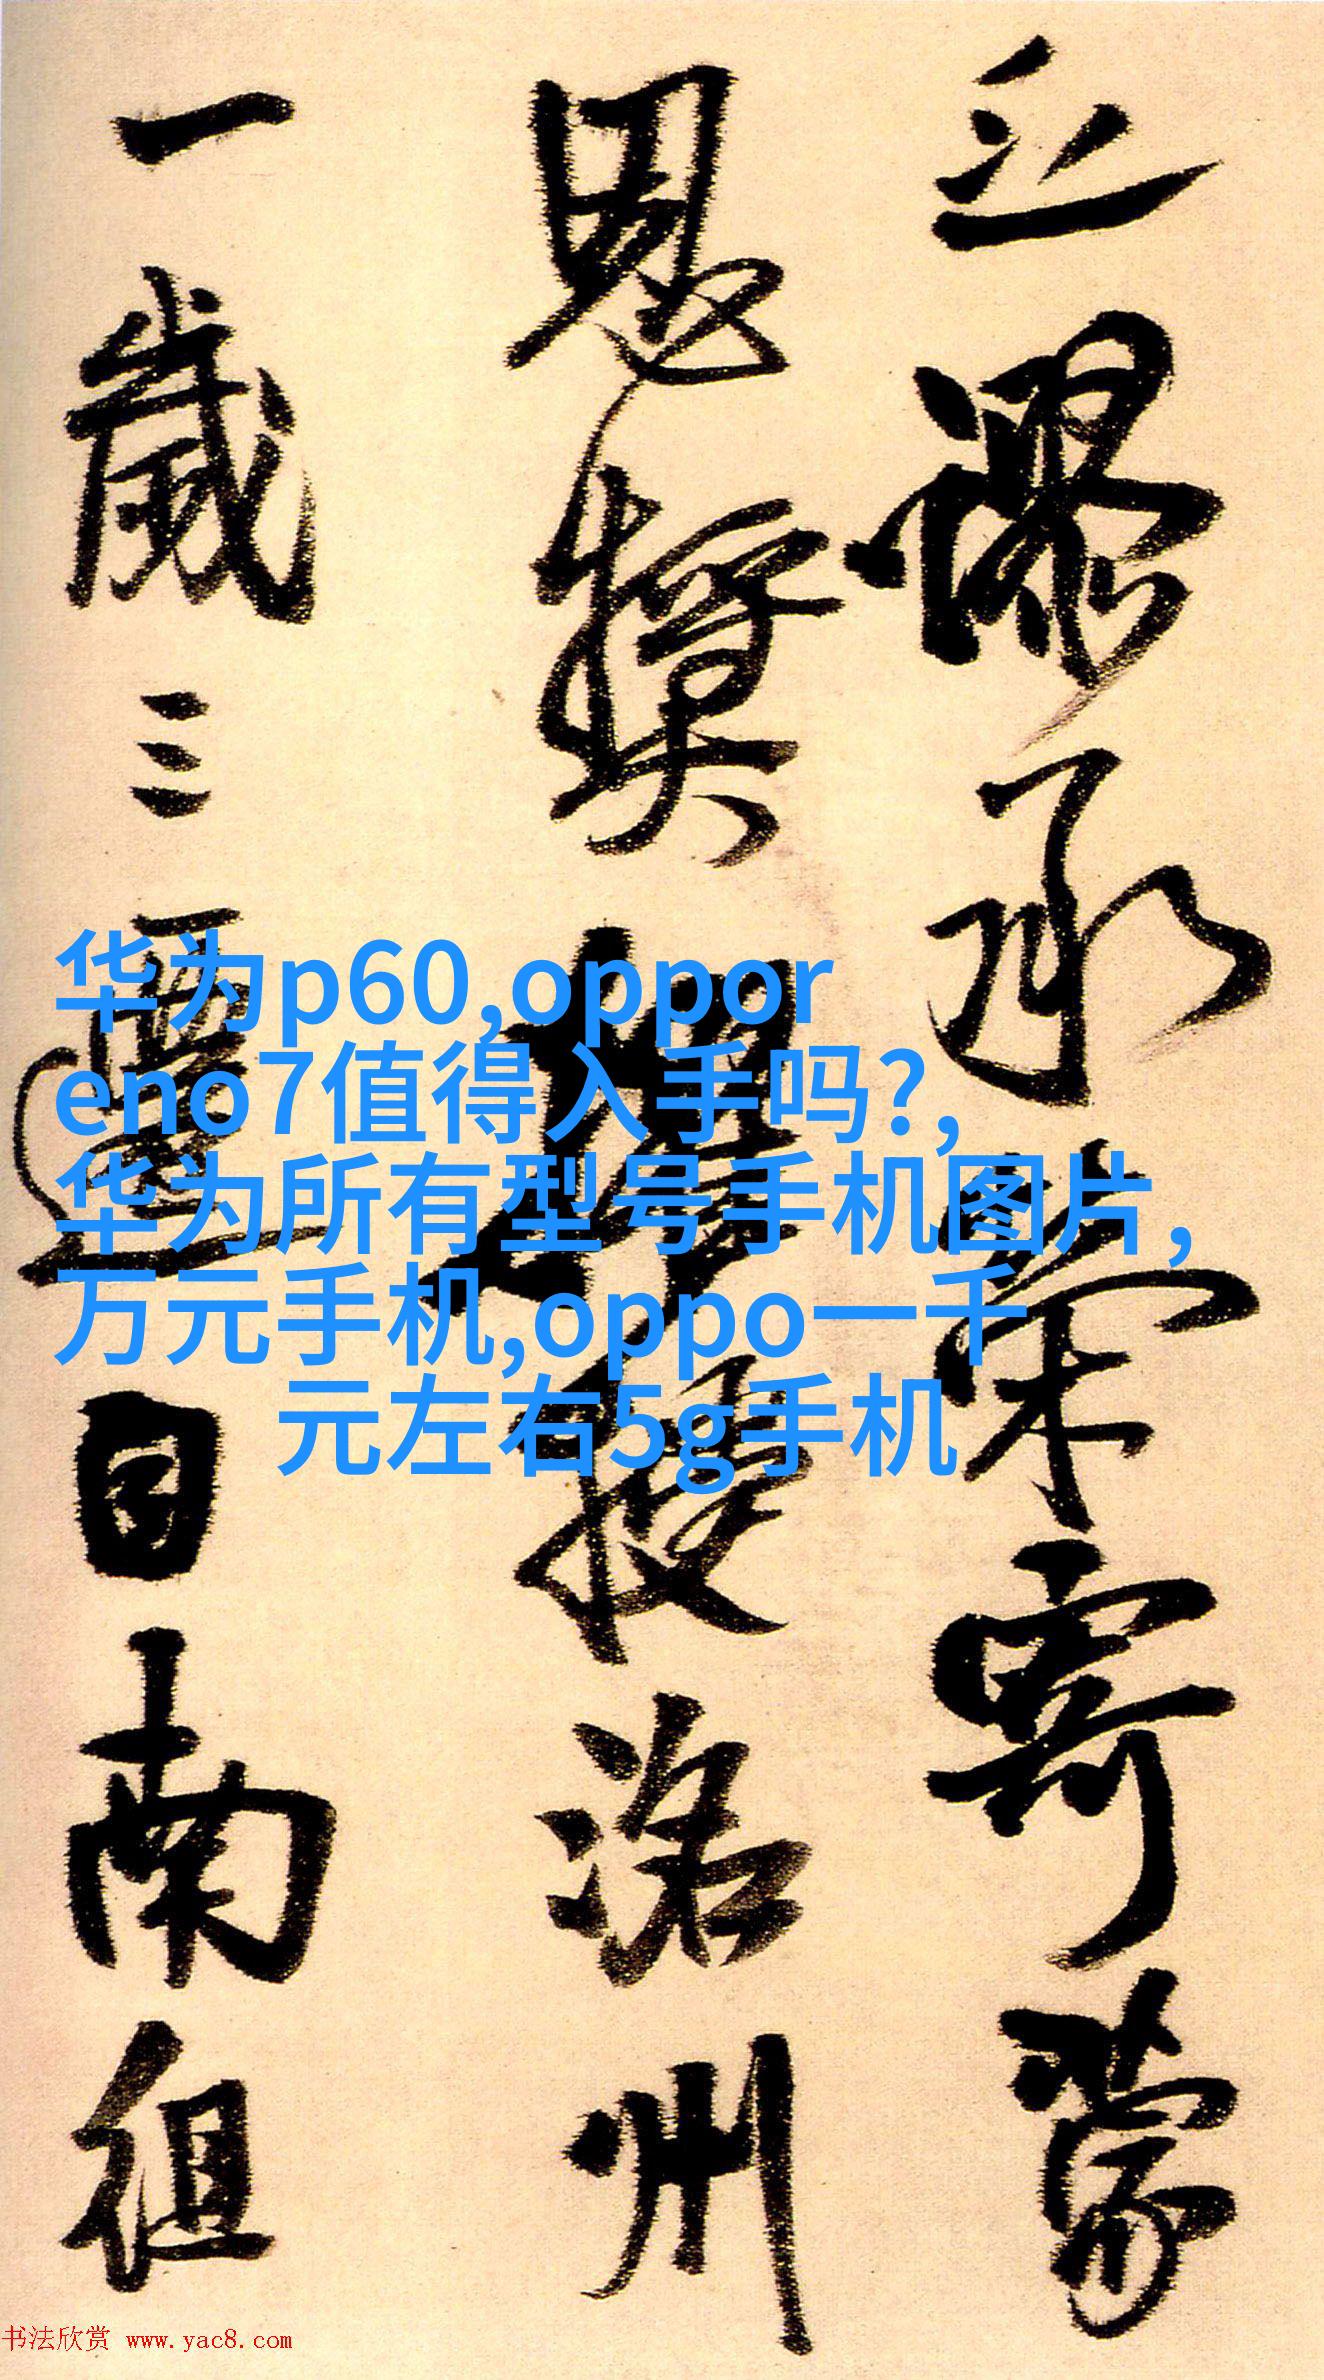 立謬承荣寄蒙
恩獎擢授洛州
一歲三遷日南徂
华为p60,oppor
eno7值得入手吗?,
华为所有型号手机图片,
万元手机,oppo一千
元左右5g手机
书法欣赏 www.yac8.com